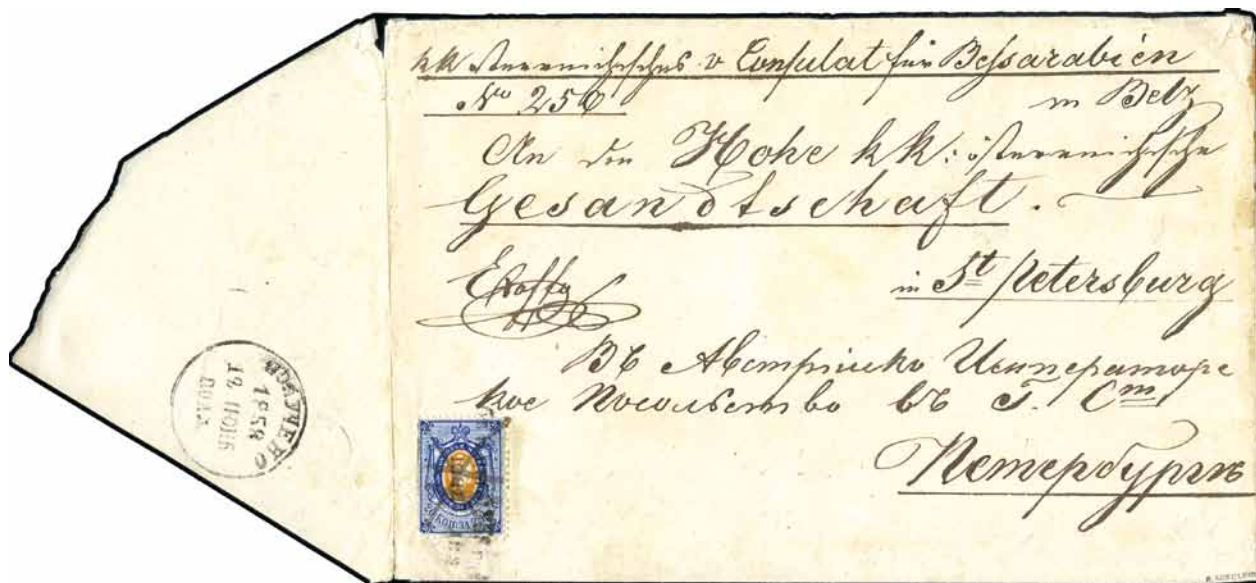 kk österreichisches v Consulat für Bessarabien
No 256
in Belz
An die Hohe k k: österreichische
Gesandtschaft.
in St Petersburg
Въ Австрійско Императорс
кое Посольство въ Г. Ст
Петербургъ
ПОЛУЧЕНО
1858
12 ІЮНЬ
ПОЛД
20 КОПѢЕКЪ